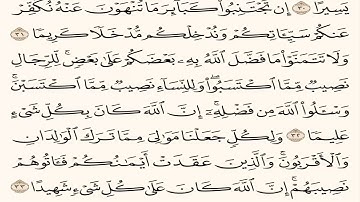 يَسِيرًا ٣٠ إِن تَجْتَنِبُوا۟ كَبَآئِرَ مَا تُنْهَوْنَ عَنْهُ نُكَفِّرْ
عَنكُمْ سَيِّـَٔاتِكُمْ وَنُدْخِلْكُم مُّدْخَلًا كَرِيمًا ٣١
وَلَا تَتَمَنَّوْا۟ مَا فَضَّلَ ٱللَّهُ بِهِۦ بَعْضَكُمْ عَلَىٰ بَعْضٍ ۚ لِّلرِّجَالِ
نَصِيبٌ مِّمَّا ٱكْتَسَبُوا۟ ۖ وَلِلنِّسَآءِ نَصِيبٌ مِّمَّا ٱكْتَسَبْنَ ۚ
وَسْـَٔلُوا۟ ٱللَّهَ مِن فَضْلِهِۦٓ ۗ إِنَّ ٱللَّهَ كَانَ بِكُلِّ شَىْءٍ
عَلِيمًا ٣٢ وَلِكُلٍّ جَعَلْنَا مَوَٰلِىَ مِمَّا تَرَكَ ٱلْوَٰلِدَانِ
وَٱلْأَقْرَبُونَ ۚ وَٱلَّذِينَ عَقَدَتْ أَيْمَٰنُكُمْ فَـَٔاتُوهُمْ
نَصِيبَهُمْ ۚ إِنَّ ٱللَّهَ كَانَ عَلَىٰ كُلِّ شَىْءٍ شَهِيدًا ٣٣